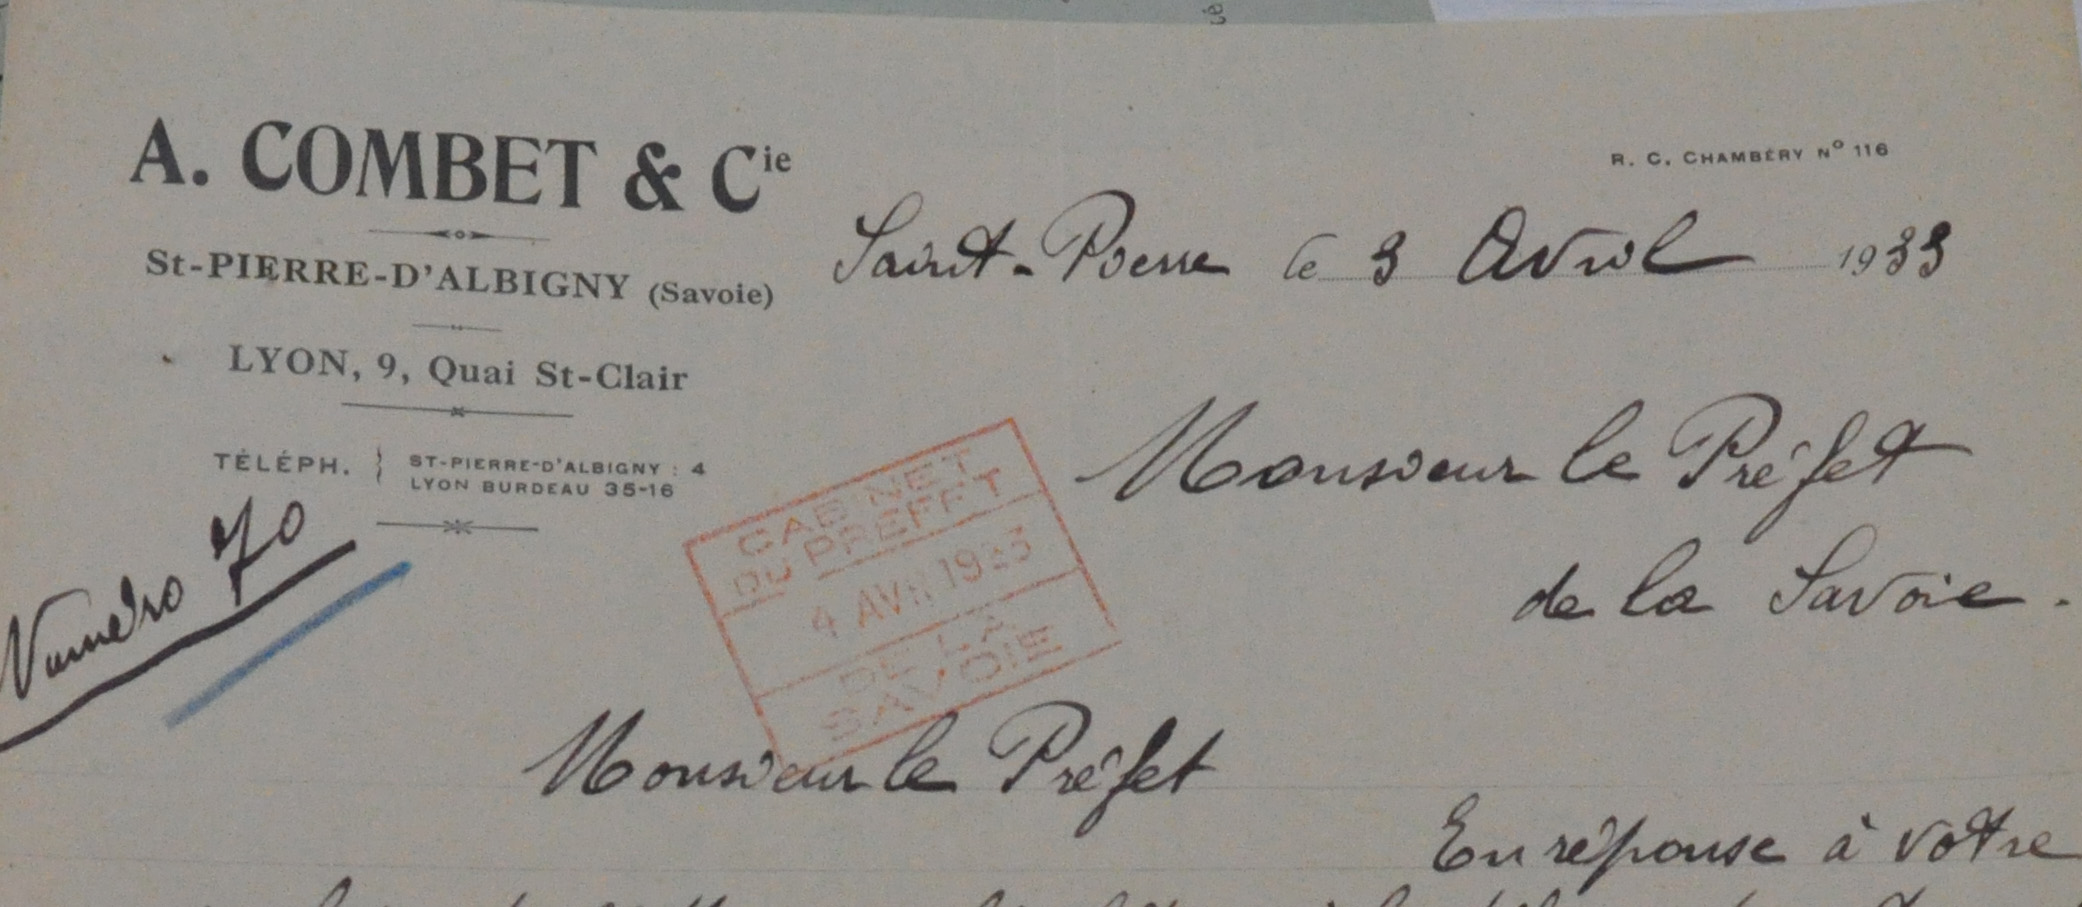 A. COMBET & Cie
St-PIERRE-D'ALBIGNY (Savoie)
LYON, 9, Quai St-Clair
TÉLÉPH. } ST-PIERRE-D'ALBIGNY : 4
LYON BURDEAU 35-16
R. C. CHAMBÉRY No 116
Saint-Pierre le 3 Avril 1933
Numéro 70
CABINET
DU PRÉFET
4 AVR 1933
DE LA
SAVOIE
Monsieur le Préfet
de la Savoie.
Monsieur le Préfet
En réponse à votre